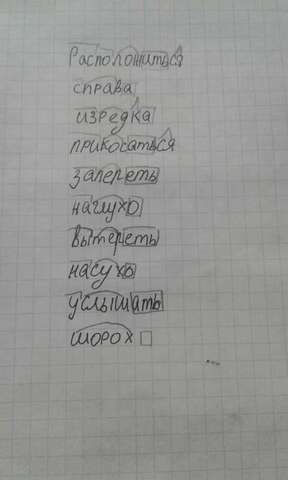 Расположиться
справа
изредка
прикосаться
запереть
наглухо
вытереть
насухо
услышать
шорох